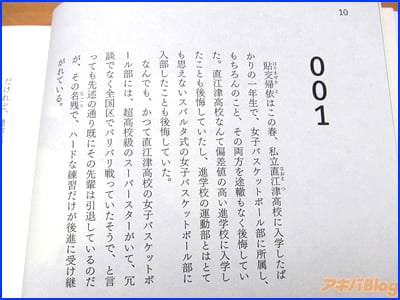 10
001
貼交帰依はこの春、私立直江津高校に入学したば
かりの一年生で、女子バスケットボール部に所属し、
もちろんのこと、その両方を途轍もなく後悔してい
た。直江津高校なんて偏差値の高い進学校に入学し
たことも後悔していたし、進学校の運動部とはとて
も思えないスパルタ式の女子バスケットボール部に
入部したことも後悔していた。
なんでも、かつて直江津高校の女子バスケットボ
ール部には、超高校級のスーパースターがいて、冗
談でなく全国区でバリバリ戦っていたそうで、と言
っても先述の通り既にその先輩は引退しているのだ
が、その名残で、ハードな練習だけが後進に受け継
がれている。
アキバBlog